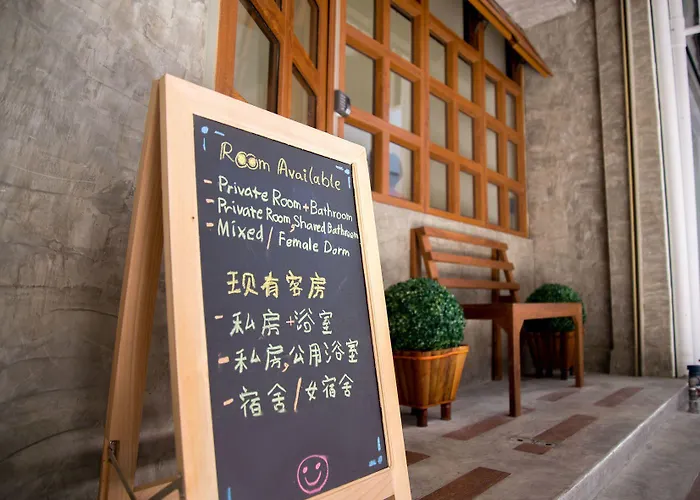 Room Available
- Private Room + Bathroom
- Private Room, Shared Bathroom
- Mixed / Female Dorm
现有客房
- 私房 + 浴室
- 私房, 公用浴室
- 宿舍 / 女宿舍